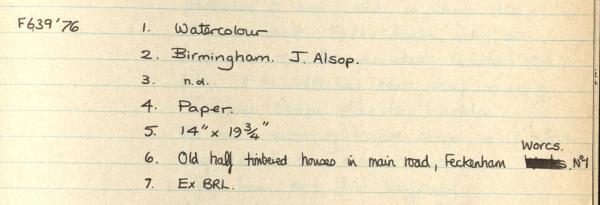 F639'76 1. Watercolour
2. Birmingham. J. Alsop.
3. n.d.
4. Paper.
5. 14" x 19 3/4"
6. Old half timbered houses in main road, Feckenham Worcs. Nº1
7. Ex BRL.